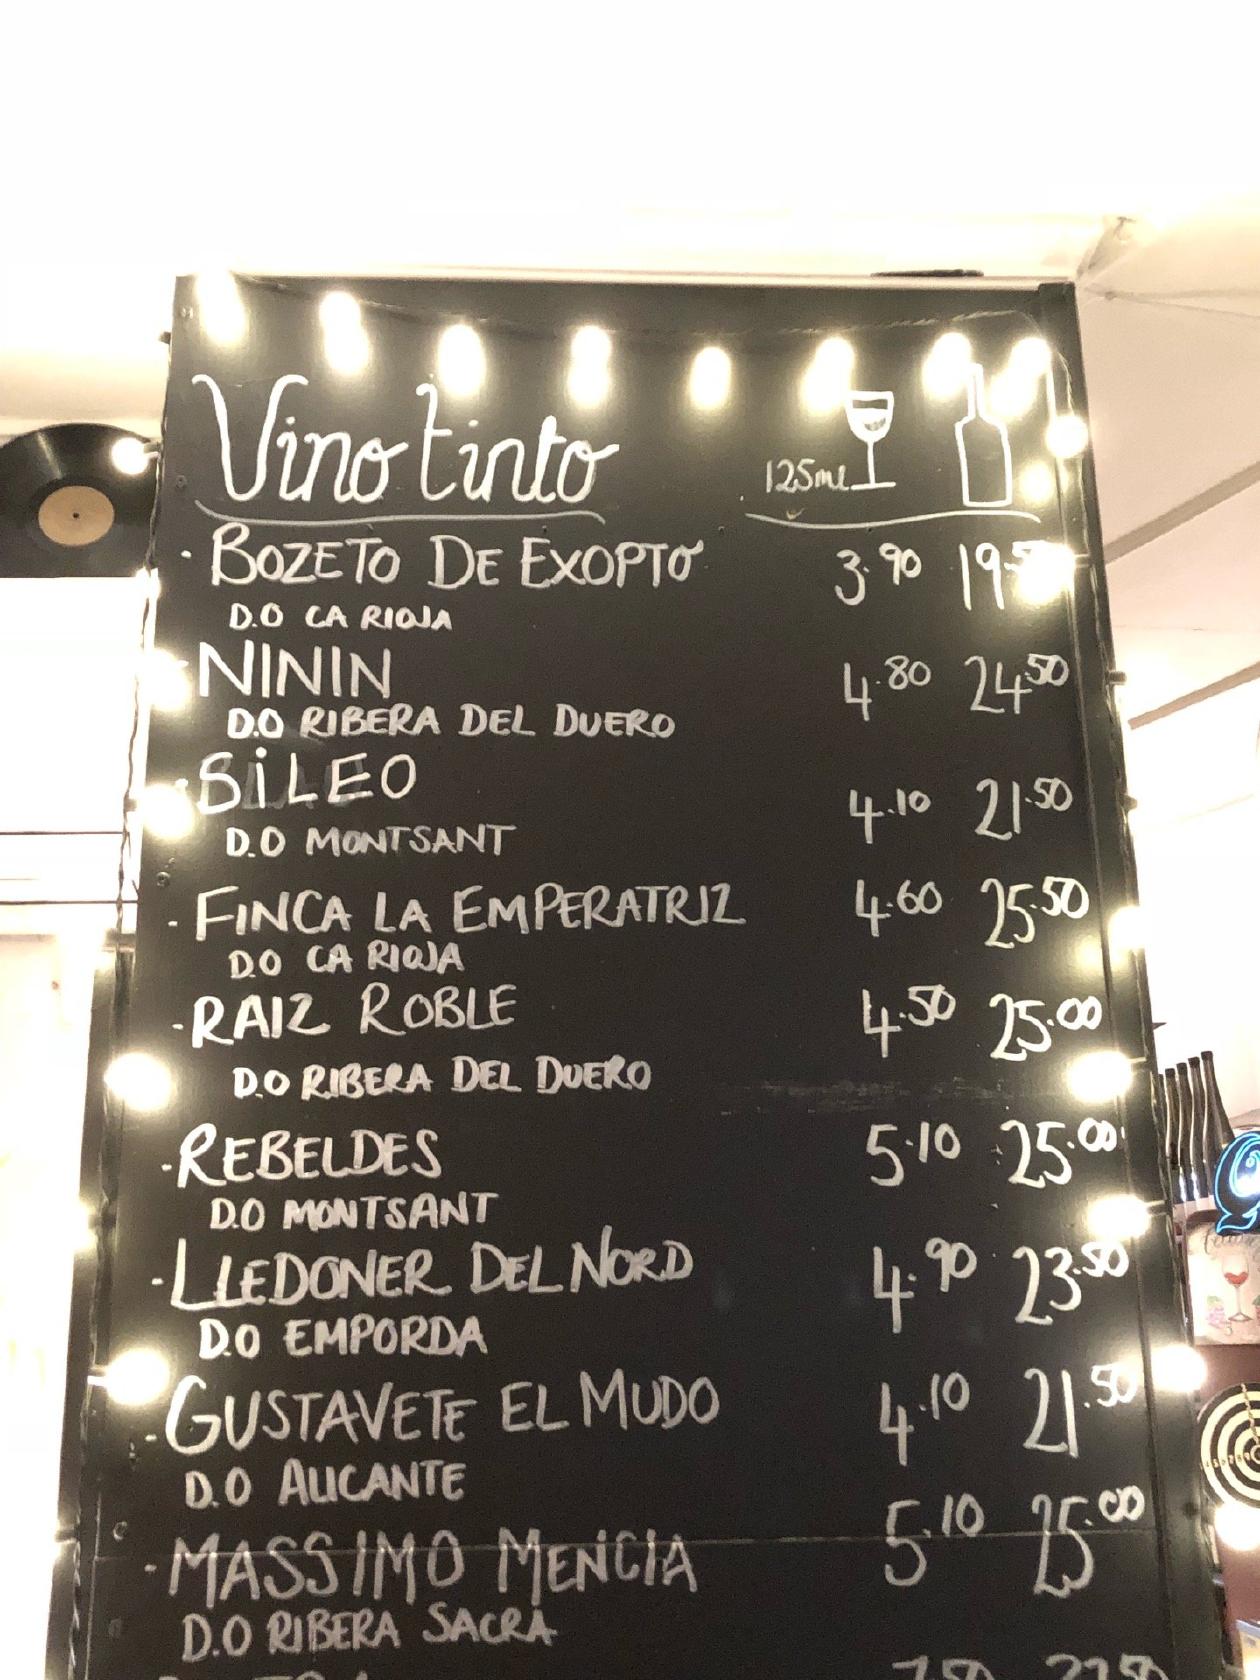 Vino tinto
125ml
· BOZETO DE EXOPTO 3.90 19.50
D.O CA RIOJA
· NININ 4.80 24.50
D.O RIBERA DEL DUERO
· SILEO 4.10 21.50
D.O MONTSANT
· FINCA LA EMPERATRIZ 4.60 25.50
D.O CA RIOJA
· RAIZ ROBLE 4.50 25.00
D.O RIBERA DEL DUERO
· REBELDES 5.10 25.00
D.O MONTSANT
· LLEDONER DEL NORD 4.90 23.50
D.O EMPORDA
· GUSTAVETE EL MUDO 4.10 21.50
D.O ALICANTE
· MASSIMO MENCIA 5.10 25.00
D.O RIBERA SACRA